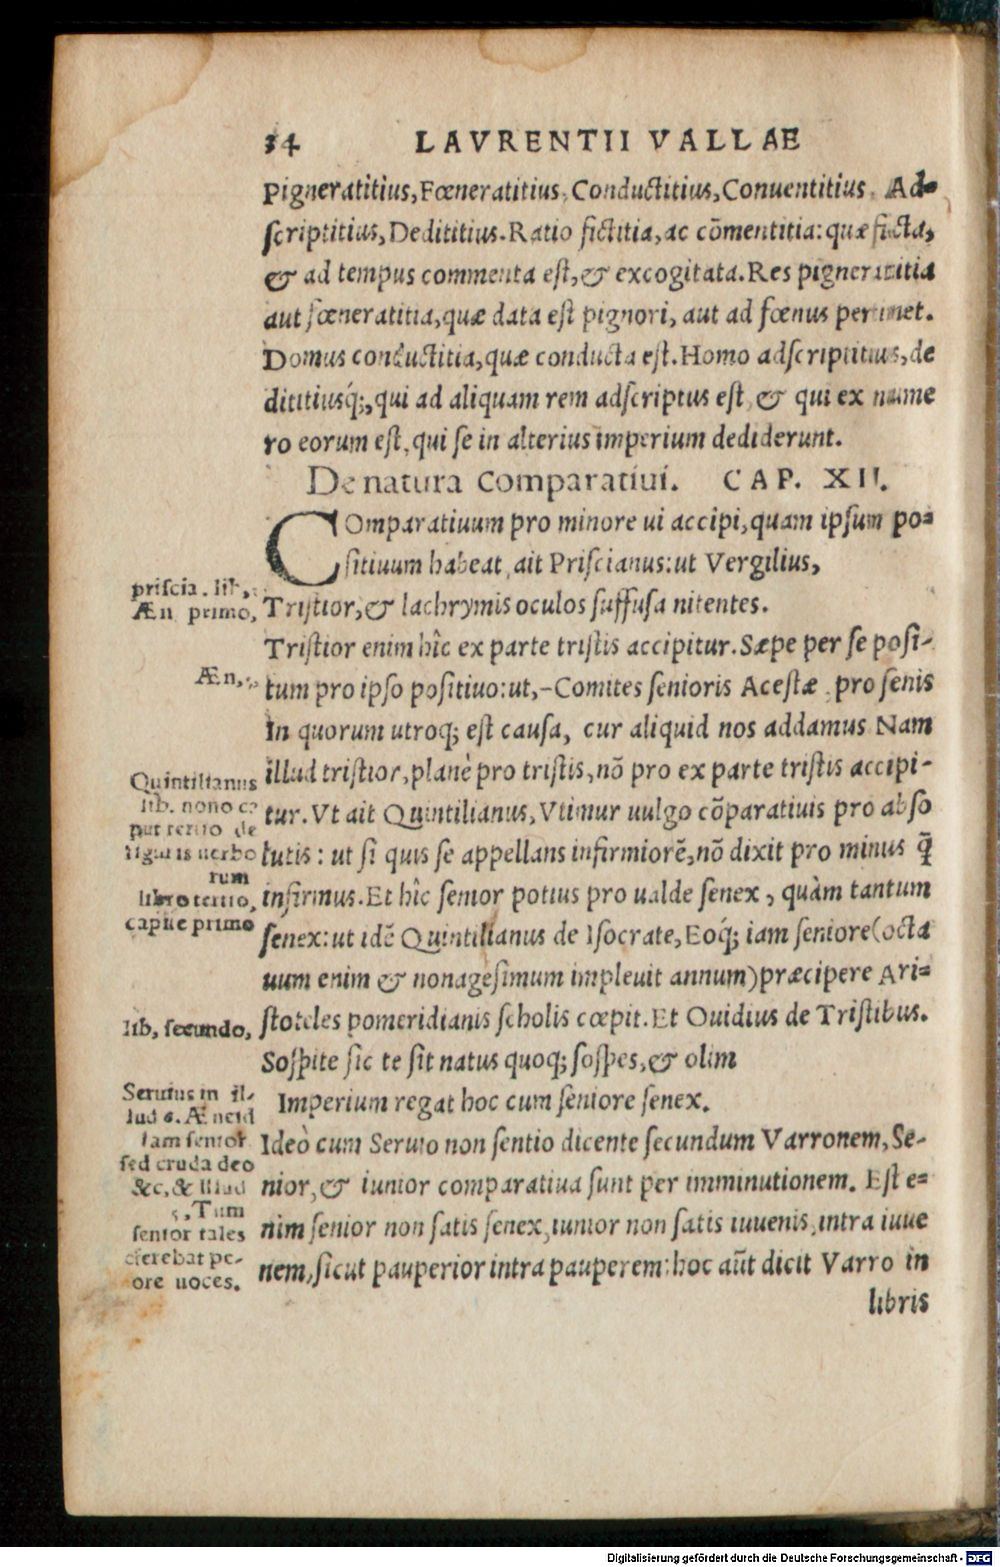 34 LAVRENTII VALLAE
pigneratitius, Fœneratitius, Conductitius, Conuentitius, Ad-
ſcriptitius, Dedititius. Ratio fictitia, ac cõmentitia: quæ ficta,
& ad tempus commenta eſt, & excogitata. Res pigneratitia
aut fœneratitia, quæ data eſt pignori, aut ad fœnus pertinet.
Domus conductitia, quæ conducta eſt. Homo adſcriptitius, de
dititiusq́;, qui ad aliquam rem adſcriptus eſt, & qui ex nume
ro eorum eſt, qui ſe in alterius imperium dediderunt.
De natura Comparatiui. CAP. XII.
COmparatiuum pro minore ui accipi, quam ipſum po-
ſitiuum habeat, ait Priſcianus: ut Vergilius,
priſcia. lib,
Æn primo,
Triſtior, & lachrymis oculos ſuffuſa nitentes.
Triſtior enim hîc ex parte triſtis accipitur. Sæpe per ſe poſi-
Æn,
tum pro ipſo poſitiuo: ut, -Comites ſenioris Aceſtæ, pro ſenis
In quorum utroq; eſt cauſa, cur aliquid nos addamus Nam
illud triſtior, planè pro triſtis, nõ pro ex parte triſtis accipi-
Quintilianus
lib. nono ca
put tertio de
figuris uerbo
rum
libro tertio,
capite primo
tur. Vt ait Quintilianus, Vtimur uulgo cõparatiuis pro abſo
lutis: ut ſi quis ſe appellans infirmiorẽ, nõ dixit pro minus q̃
infirmus. Et hîc ſenior potius pro ualde ſenex, quàm tantum
ſenex: ut idẽ Quintilianus de Iſocrate, Eoq́; iam ſeniore (octa
uum enim & nonageſimum impleuit annum) præcipere Ari-
lib, ſecundo,
ſtoteles pomeridianis ſcholis cœpit. Et Ouidius de Triſtibus.
Soſpite ſic te ſit natus quoq; ſoſpes, & olim
Imperium regat hoc cum ſeniore ſenex.
Seruius in il-
lud 6. Æneid
Iam ſenior
ſed cruda deo
&c, & illud
5, Tum
ſenior tales
referebat pe-
ctore uoces.
Ideò cum Seruio non ſentio dicente ſecundum Varronem, Se-
nior, & iunior comparatiua ſunt per imminutionem. Eſt e-
nim ſenior non ſatis ſenex, iunior non ſatis iuuenis, intra iuue
nem, ſicut pauperior intra pauperem: hoc aũt dicit Varro in
libris
Digitalisierung gefördert durch die Deutsche Forschungsgemeinschaft - DFG